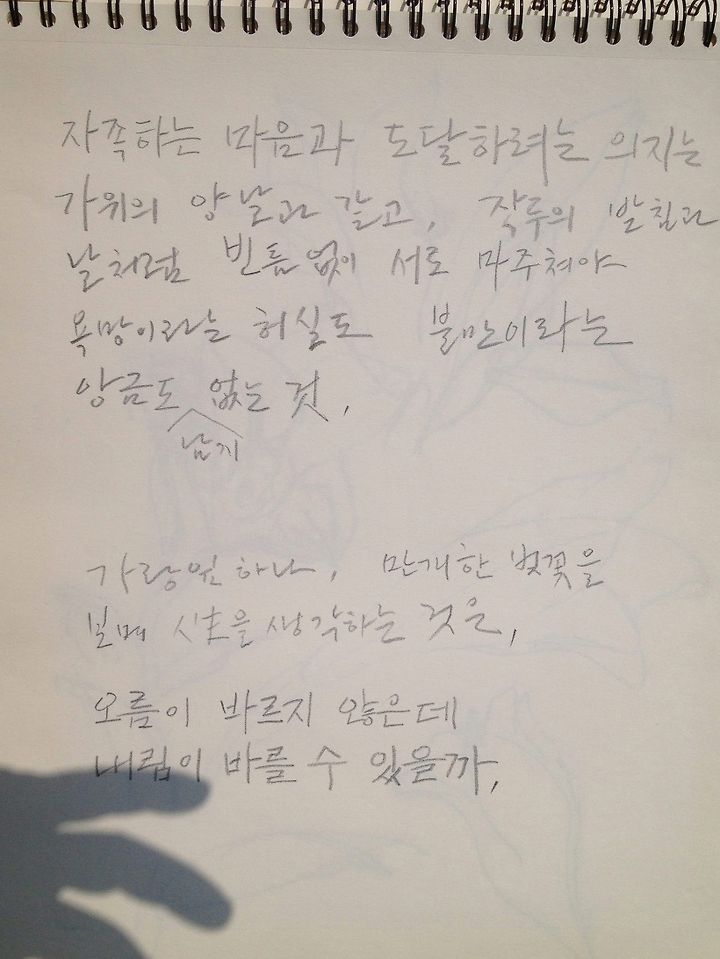 자족하는 마음과 도달하려는 의지는
가위의 양날과 같고, 작두의 발침과
날처럼 빈틈없이 서로 마주쳐야
욕망이라는 허실도 불만이라는
앙금도 없는 것,
남지
가랑잎 하나, 만개한 벚꽃을
보며 生을 생각하는 것은,
오름이 바르지 않은데
내림이 바를 수 있을까,